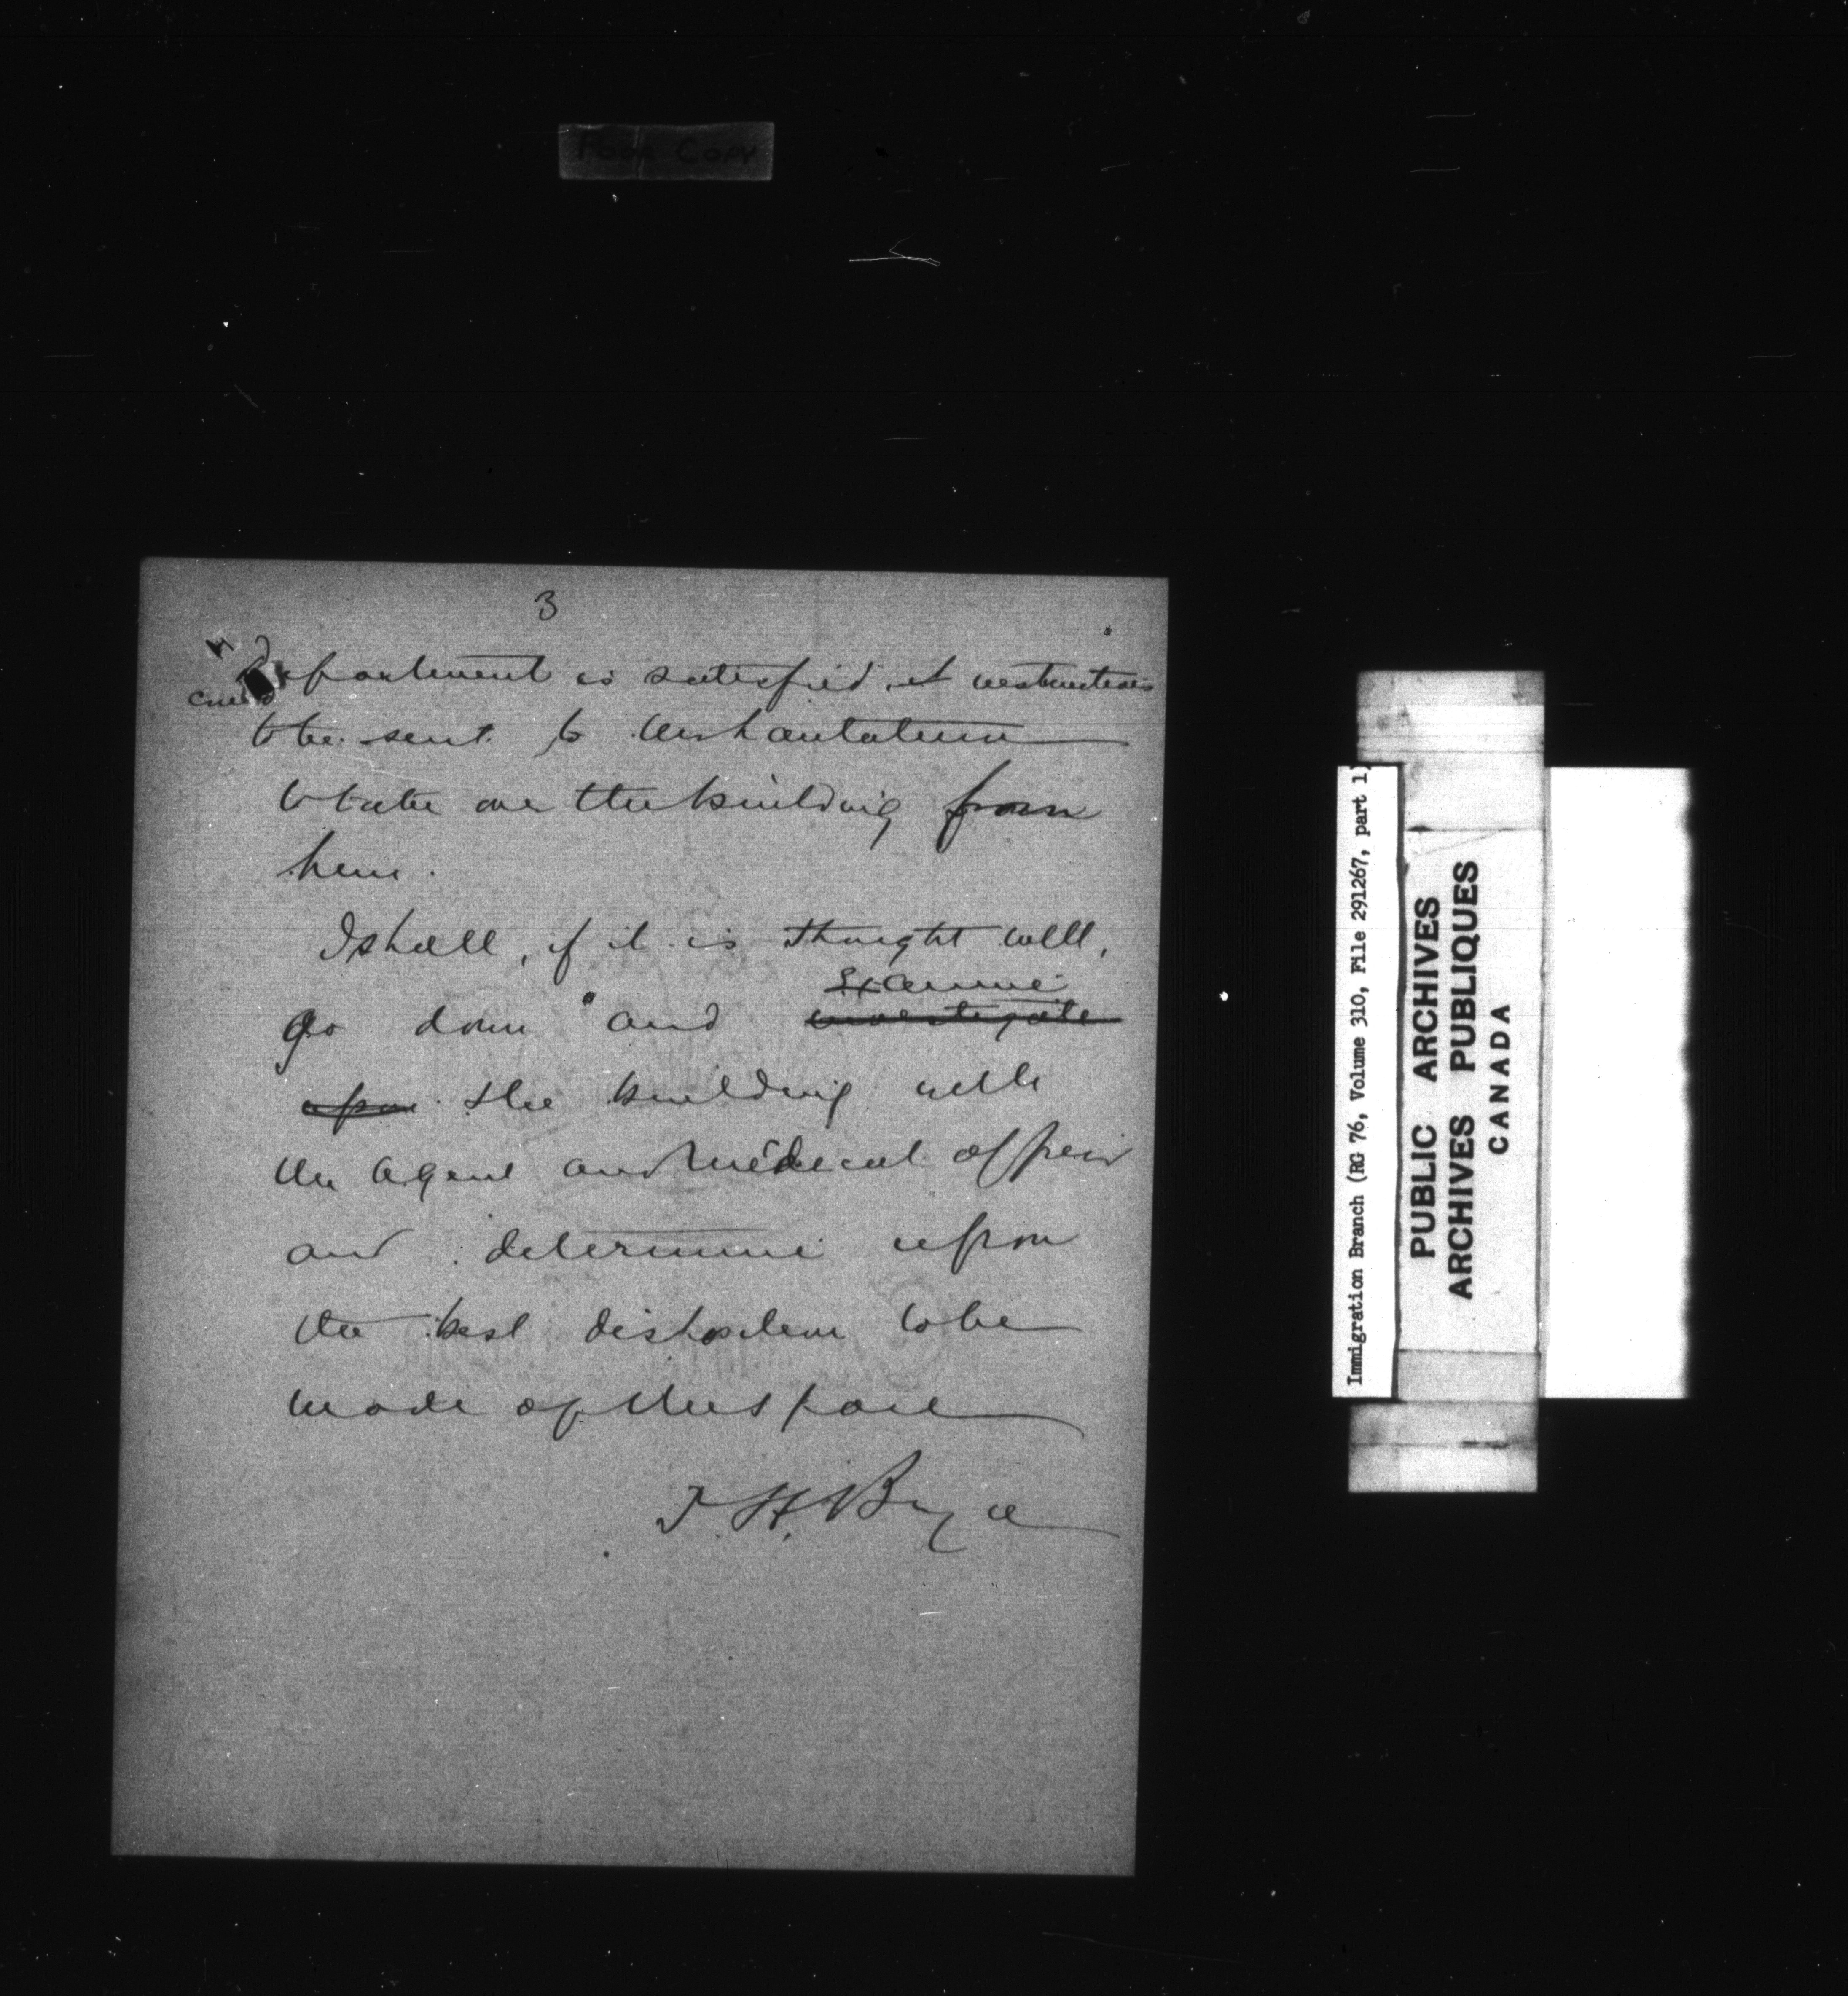 Poor Copy
3
Department is satisfied, instructions
to be sent to
to take over the building from
him.
I shall, if it is thought well,
examine
go down and investigate
upon the building with
the Agent and Medical officer
and determine upon
the best disposition to be
made of the space
P. H. Bryce
Immigration Branch (RG 76, Volume 310, File 291267, part 1)
PUBLIC ARCHIVES
ARCHIVES PUBLIQUES
CANADA